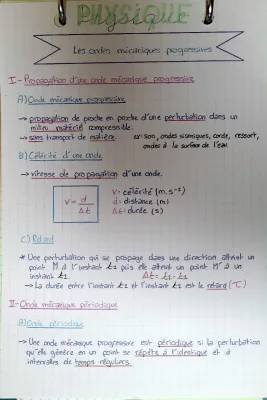 PHYSIQUE
Les ondes mécaniques progressives
I - Propagation d'une onde mécanique progressive
A) Onde mécanique progressive
→ propagation de proche en proche d'une perturbation dans un
milieu matériel compressible.
→ sans transport de matière. ex: son, ondes sismiques, corde, ressort,
ondes à la surface de l'eau.
B) Célérité d'une onde
→ vitesse de propagation d'une onde.
V = d / Δt
V = célérité (m.s⁻¹)
d = distance (m)
Δt = durée (s)
C) Retard
* Une perturbation qui se propage dans une direction atteint un
point M à l'instant t1 puis elle atteint un point M' à un
instant t2. Δt = t2 - t1
→ La durée entre l'instant t1 et l'instant t2 est le retard (τ)
II - Onde mécanique périodique
A) Onde périodique
→ Une onde mécanique progressive est périodique si la perturbation
qu'elle génère en un point se répète à l'identique et à
intervalles de temps réguliers.